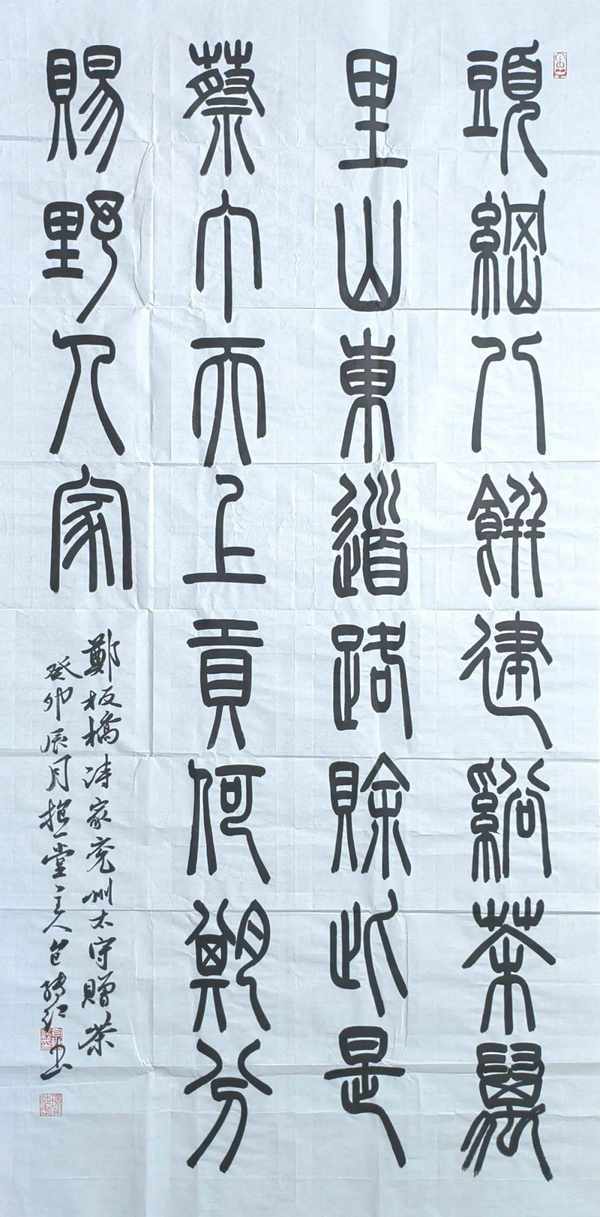 頭綱八餅建谿茶萬
里山東道路賒此是
蔡丁天上貢何期分
賜野人家
鄭板橋詩家兗州太守贈茶
癸卯辰月堂主人包書